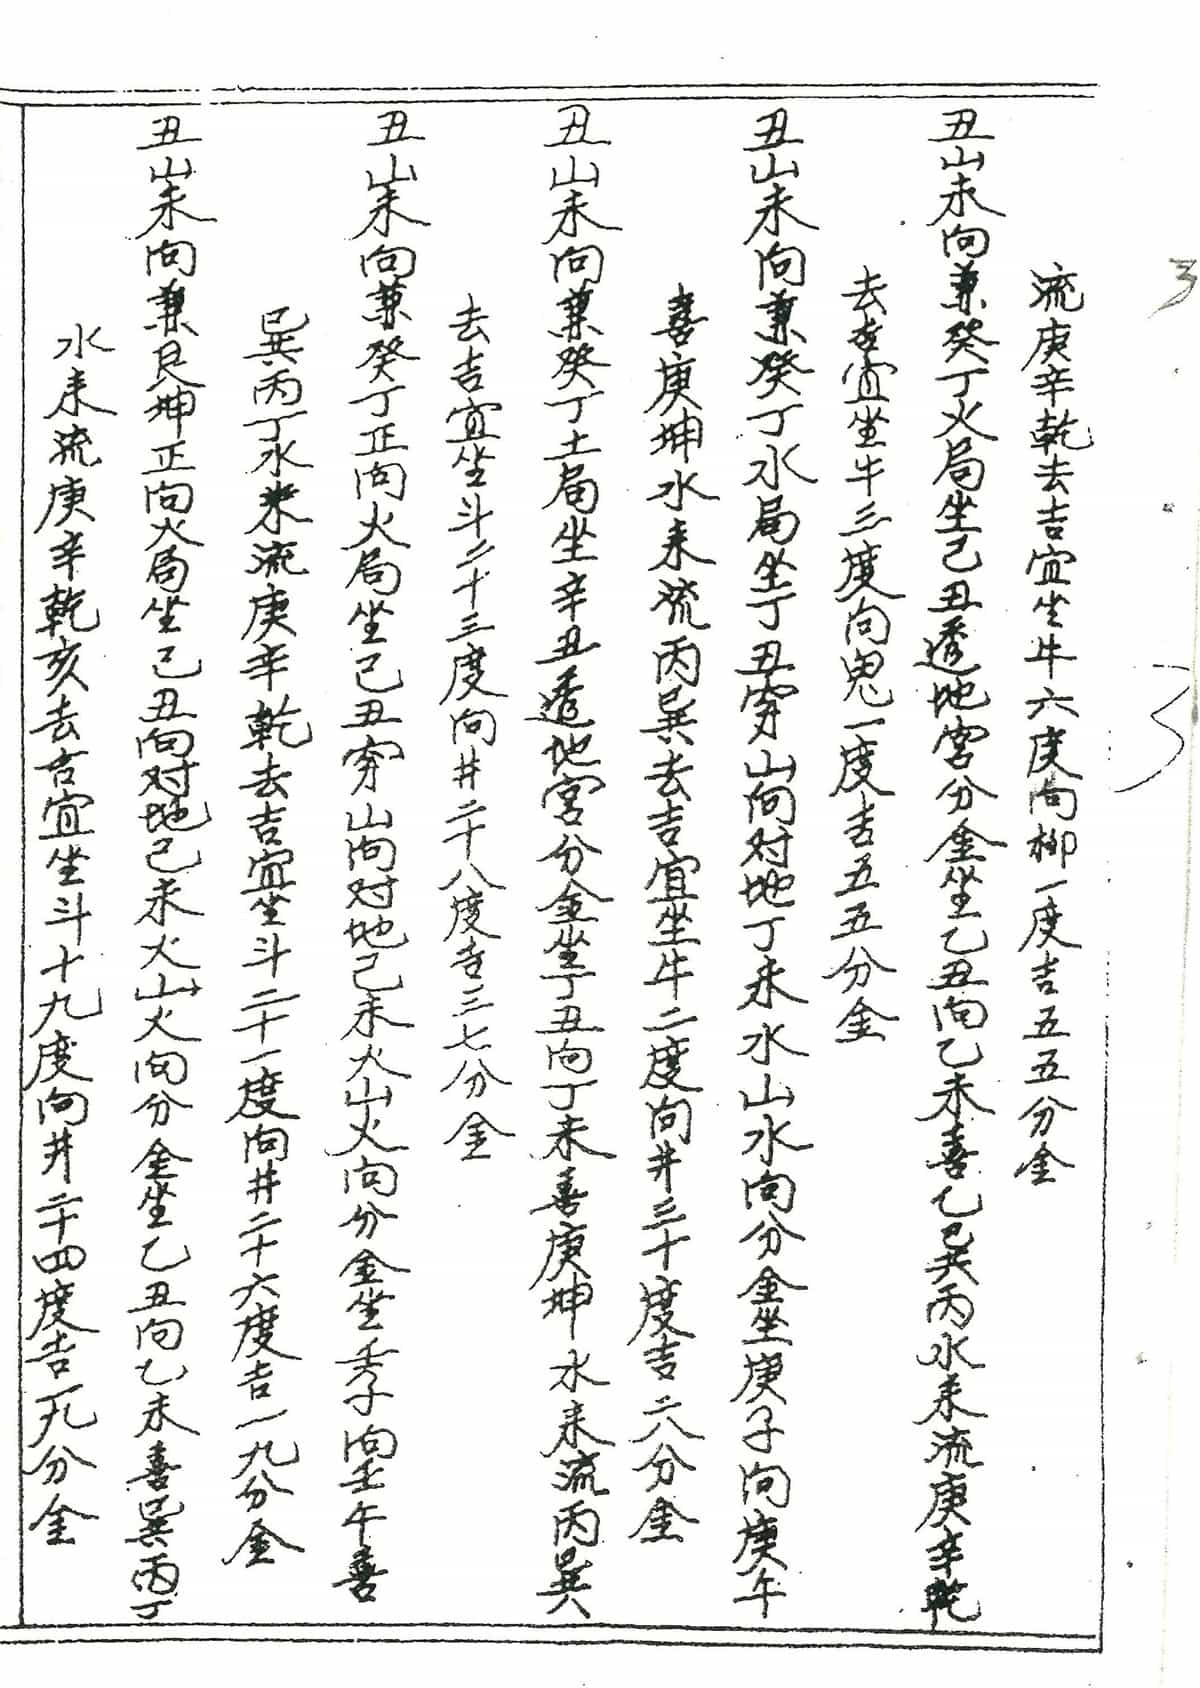 流庚辛乾去吉宜坐牛六度向柳一度吉五五分金
丑山未向兼癸丁火局坐己丑透地宮分金坐乙丑向乙未喜乙巳巽丙水来流庚辛乾
去吉宜坐牛三度向鬼一度吉五五分金
丑山未向兼癸丁水局坐丁丑穿山向对地丁未水山水向分金坐庚子向庚午
喜庚坤水来流丙巽去吉宜坐牛二度向井三十度吉二八分金
丑山未向兼癸丁土局坐辛丑透地宮分金坐丁丑向丁未喜庚坤水来流丙巽
去吉宜坐斗二十三度向井二十八度吉三七分金
丑山未向兼癸丁正向火局坐己丑穿山向对地己未火山火向分金坐壬子向壬午喜
巳巽丙丁水来流庚辛乾去吉宜坐斗二十一度向井二十六度吉一九分金
丑山未向兼艮坤正向火局坐己丑向对地己未火山火向分金坐乙丑向乙未喜巽丙丁
水来流庚辛乾亥去吉宜坐斗十九度向井二十四度吉一九分金
3
3